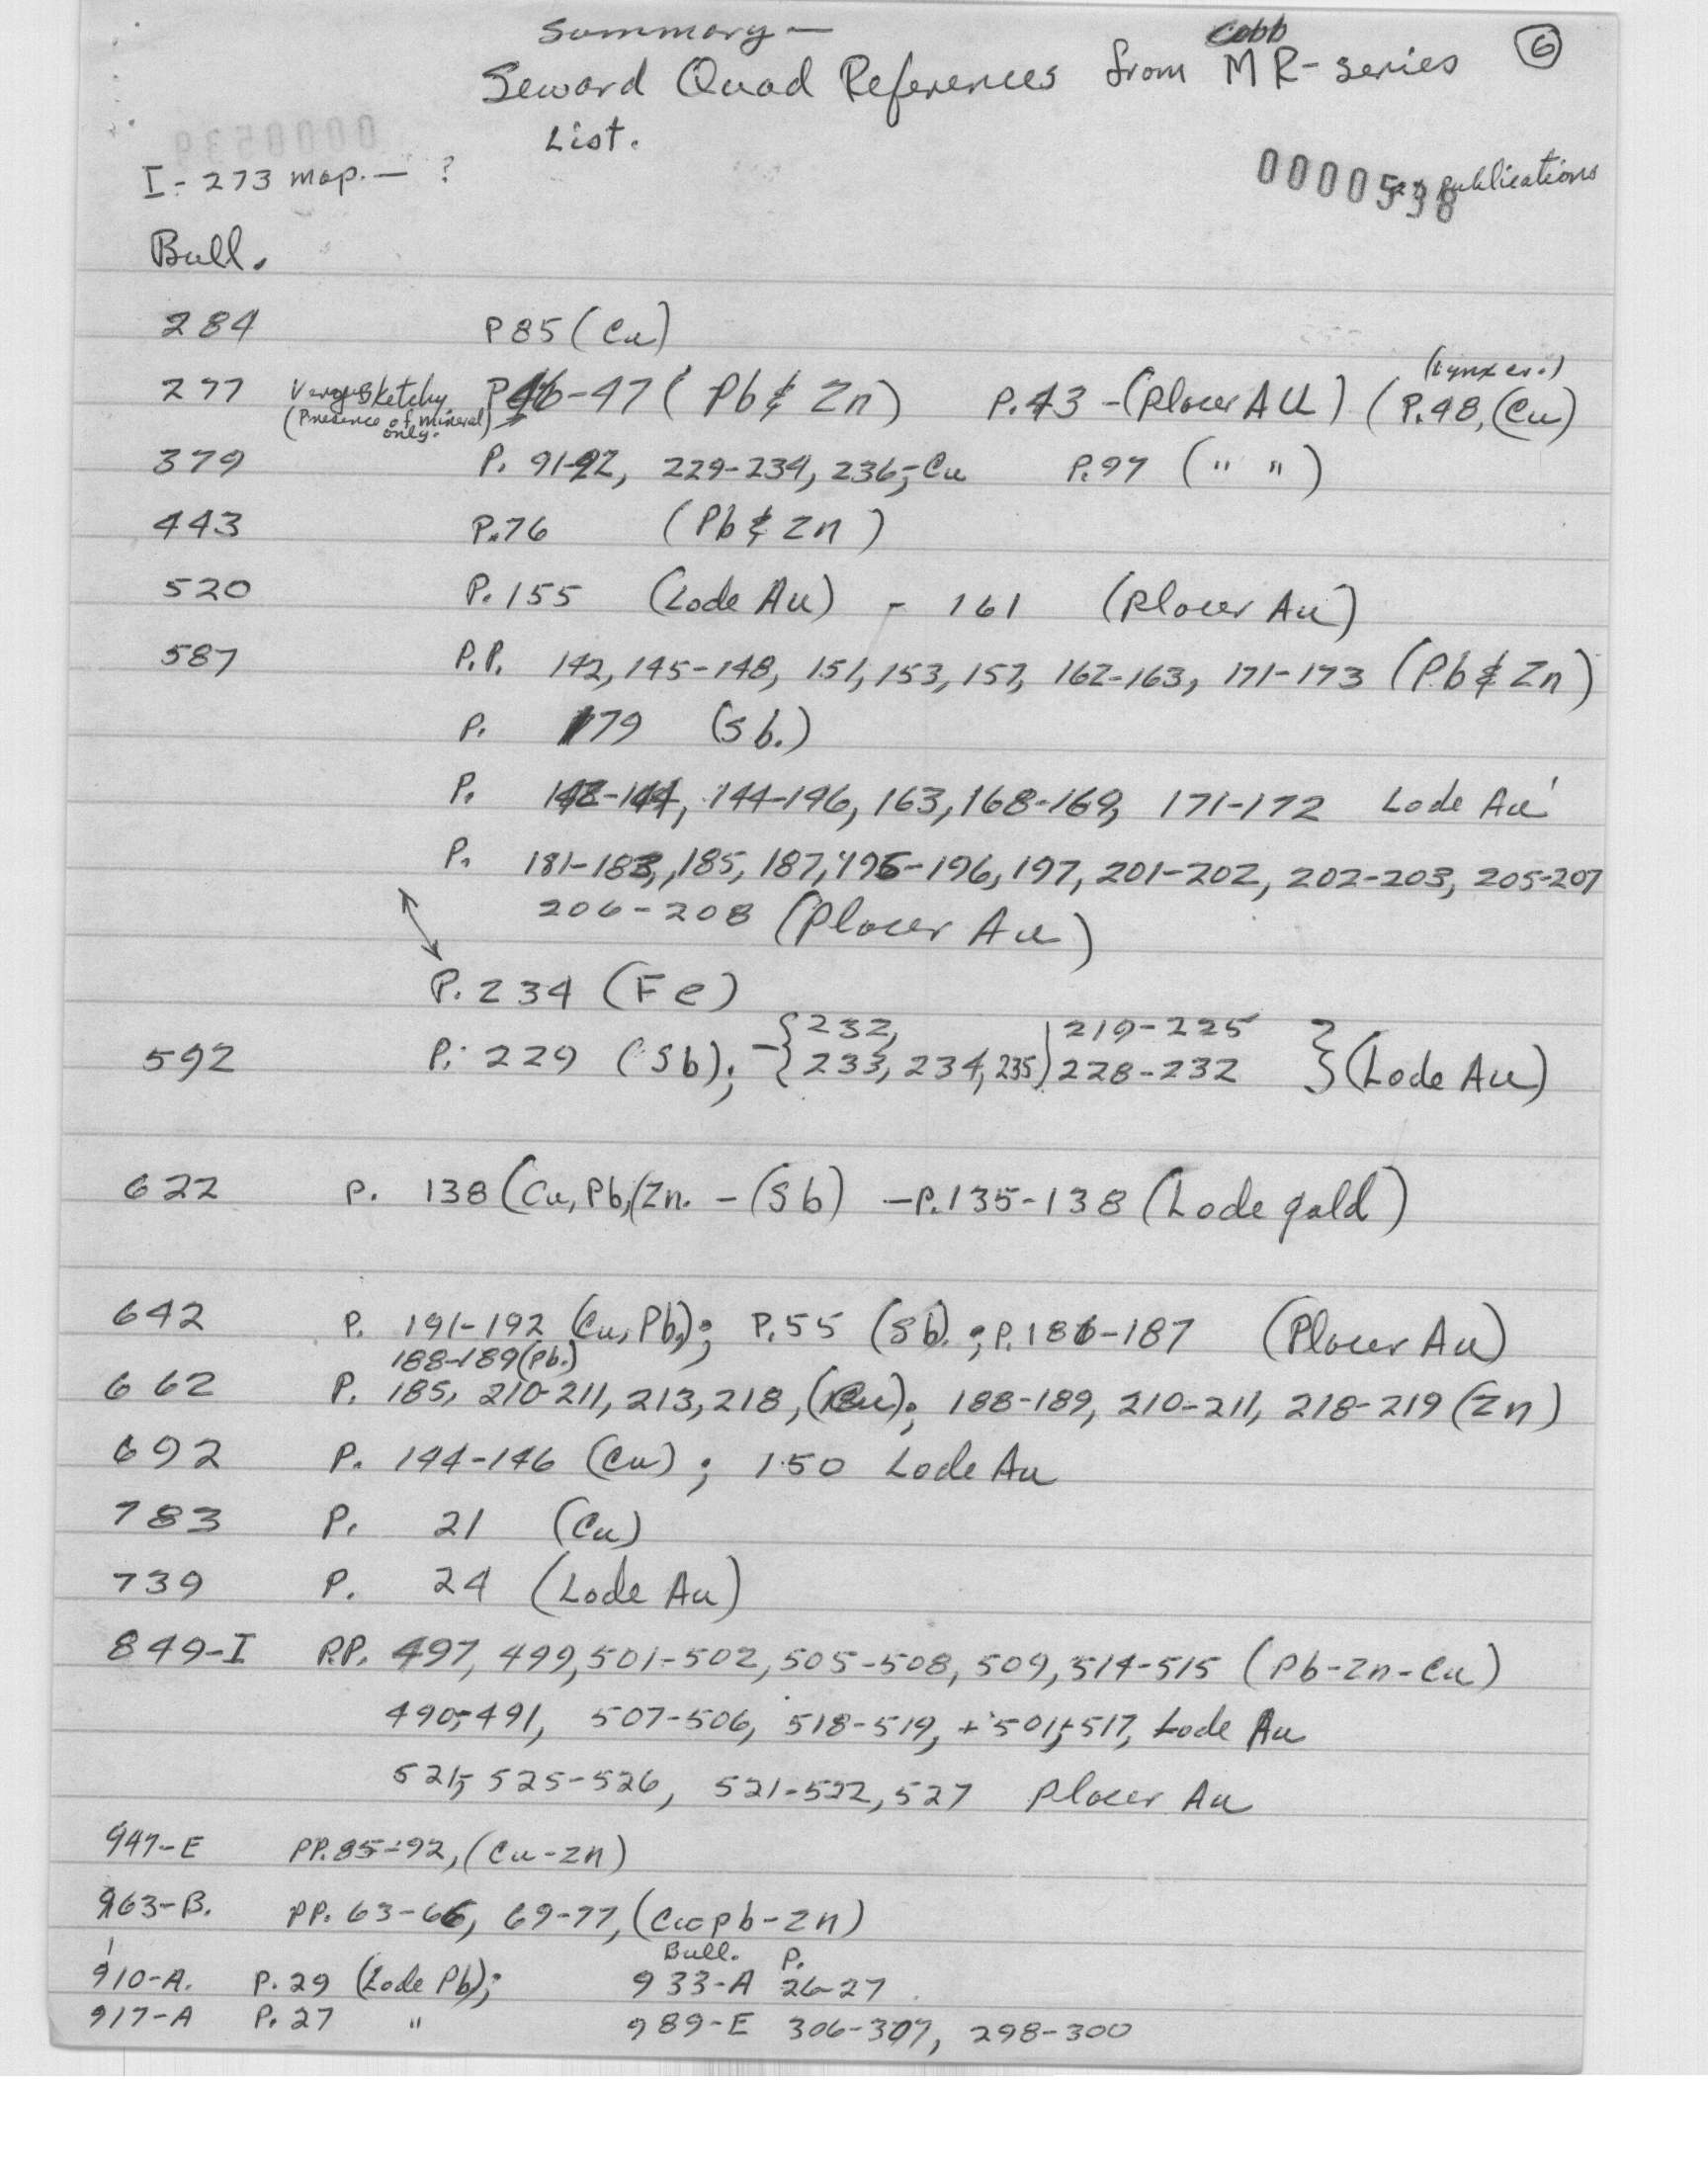 Summary –
Cobb
Seward Quad References from MR-series 6
List.
0000539
I-273 map. — ?
0000538 publications
Bull.
284 P 85 (Cu)
(Lynx cr.)
277 Very Sketchy P 46-47 (Pb & Zn) P. 43 - (Placer AU) (P. 48, (Cu)
(Presence of mineral)
only.
379 P. 91-92, 229-234, 236, - Cu P. 97 (" ")
443 P. 76 (Pb & Zn)
520 P. 155 (Lode Au) - 161 (Placer Au)
587 P.P. 142, 145-148, 151, 153, 157, 162-163, 171-173 (Pb & Zn)
P. 179 (Sb.)
P. 144-146, 163, 168-169, 171-172 Lode Au
P. 181-183, 185, 187, 195-196, 197, 201-202, 202-203, 205-207
206-208 (Placer Au)
P. 234 (Fe)
232, 219-225
592 P. 229 (Sb); - { 233, 234, 235) 228-232 } (Lode Au)
622 P. 138 (Cu, Pb, (Zn. - (Sb) - P. 135-138 (Lode gold)
642 P. 191-192 (Cu, Pb.); P. 55 (Sb). ; P. 186-187 (Placer Au)
188-189 (Pb.)
662 P. 185, 210-211, 213, 218, (Cu); 188-189, 210-211, 218-219 (Zn)
692 P. 144-146 (Cu) ; 150 Lode Au
783 P. 21 (Cu)
739 P. 24 (Lode Au)
849-I P.P. 497, 499, 501-502, 505-508, 509, 514-515 (Pb-Zn-Cu)
490-491, 507-506, 518-519, + 501, 517, Lode Au
521, 525-526, 521-522, 527 Placer Au
947-E PP. 85-92, (Cu-Zn)
963-B. PP. 63-66, 69-77, (Cu-Pb-Zn)
Bull. P.
910-A. P. 29 (Lode Pb); 933-A 26-27
917-A P. 27 " 989-E 306-307, 298-300